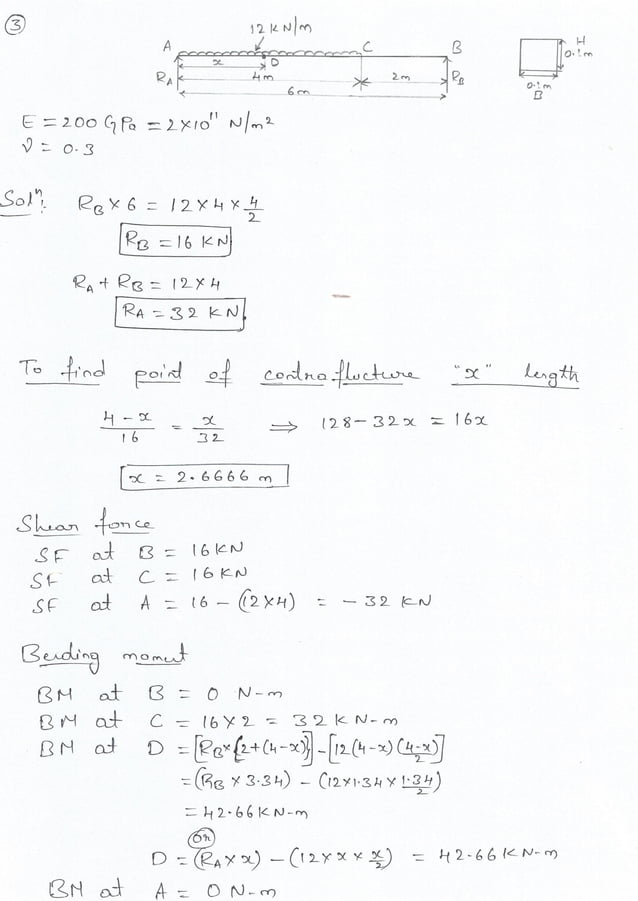 ③
12 KN/m
A C B H
x D 0.1m
R_A 4m 2m R_B 0.1m
6m B
E = 200 GPa = 2×10¹¹ N/m²
ν = 0.3
Solⁿ: R_B × 6 = 12 × 4 × 4/2
R_B = 16 KN
R_A + R_B = 12 × 4
R_A = 32 KN
To find point of contraflucture "x" length
4-x/16 = x/32 ⇒ 128 - 32x = 16x
x = 2.6666 m
Shear force
SF at B = 16 KN
SF at C = 16 KN
SF at A = 16 - (12×4) = - 32 KN
Bending moment
BM at B = 0 N-m
BM at C = 16 × 2 = 32 KN-m
BM at D = [R_B × {2+(4-x)}] - [12(4-x)(4-x)/2]
= (R_B × 3.34) - (12×1.34 × 1.34/2)
= 42.66 KN-m
(or)
D = (R_A × x) - (12 × x × x/2) = 42.66 KN-m
BM at A = 0 N-m